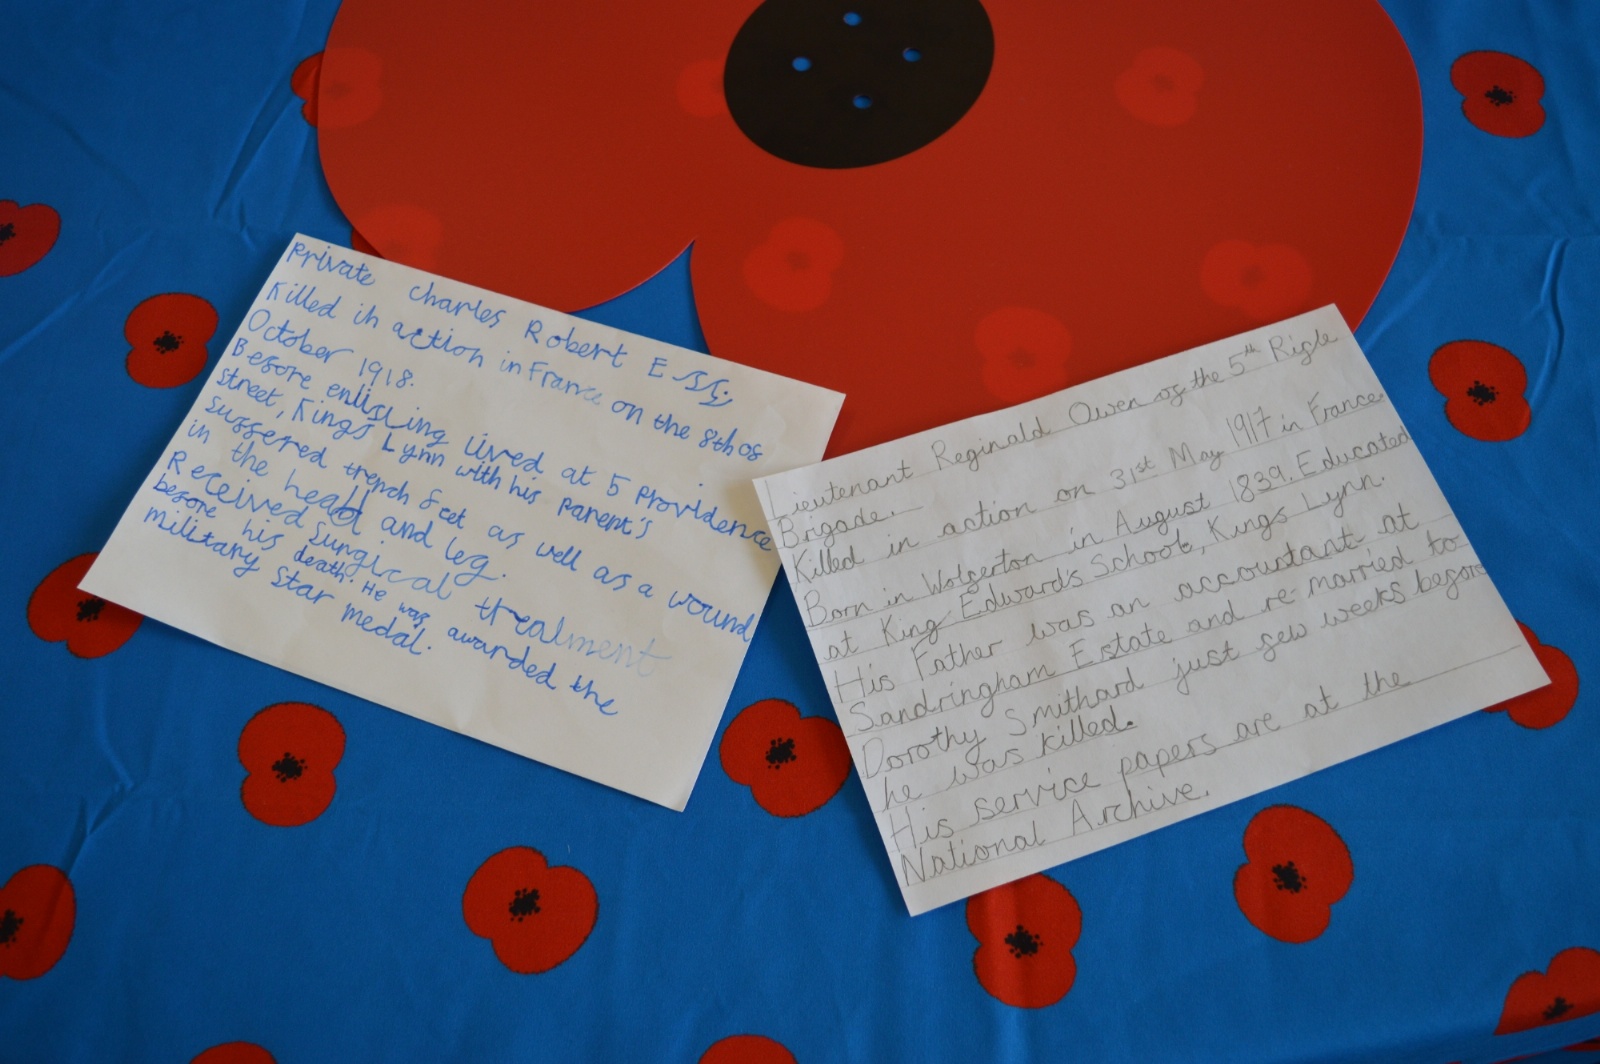 Private Charles Robert
Killed in action in France on the 8th of
October 1918.
Before enlisting lived at 5 providence
street, Kings Lynn with his parent's
suffered trench feet as well as a wound
in the head and leg.
Received surgical treatment
before his death. He was awarded the
military Star medal.
Lieutenant Reginald Owen of the 5th Rifle
Brigade.
Killed in action on 31st May 1917 in France
Born in Wolferton in August 1839. Educated
at King Edward's School, Kings Lynn.
His Father was an accountant at
Sandringham Estate and re-married to
Dorothy Smithard just few weeks before
he was killed.
His service papers are at the
National Archive.